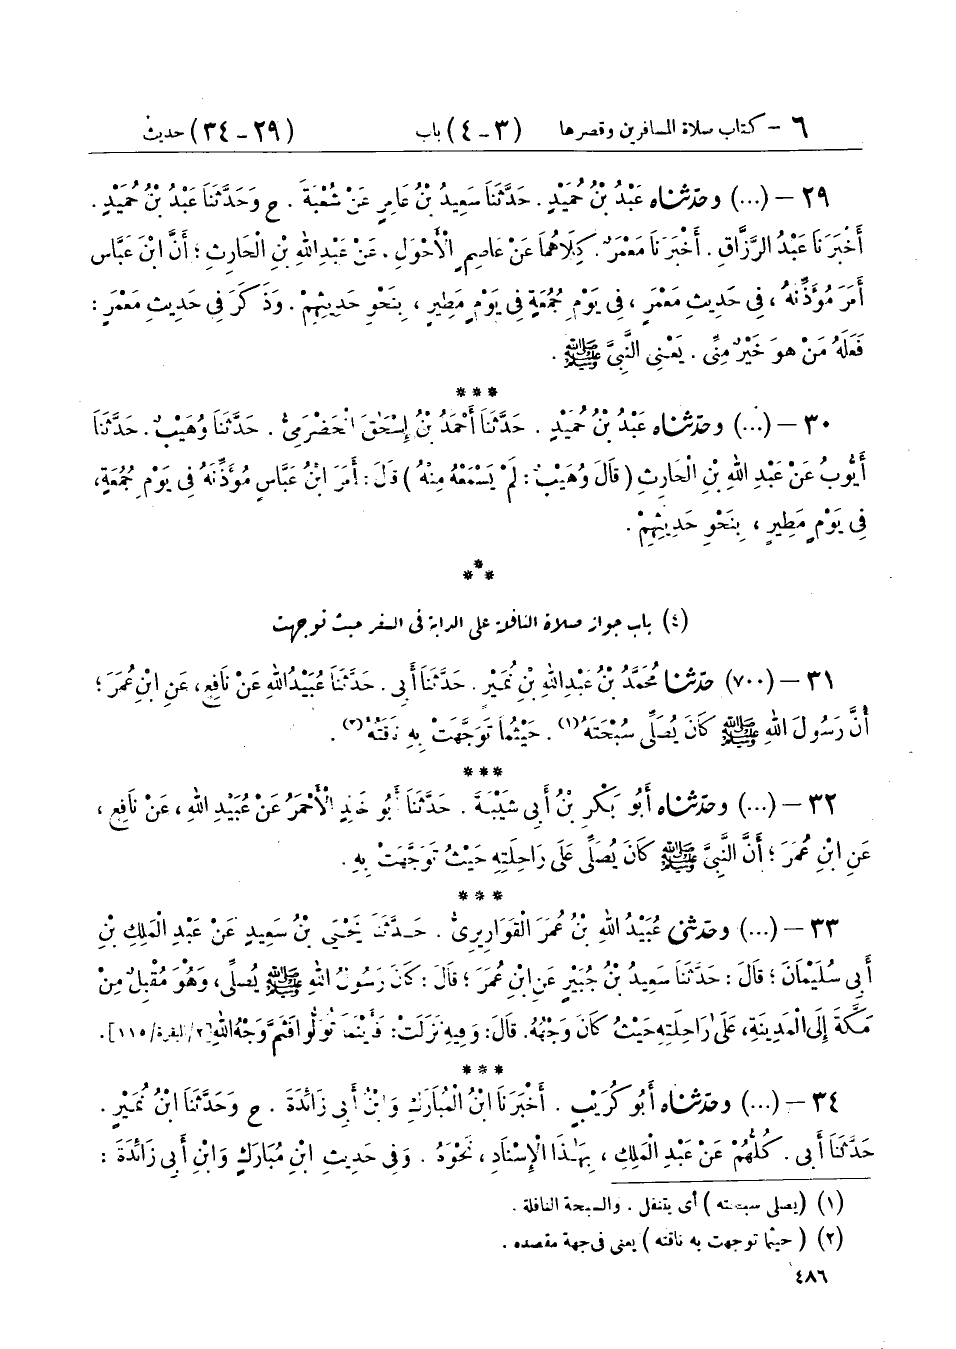 ٦ - كتاب صلاة المسافرين وقصرها (٣ - ٤) باب (٢٩ - ٣٤) حديث
٢٩ - (...) وحدثناه عَبْدُ بْنُ حُمَيْدٍ . حَدَّثَنَا سَعِيدُ بْنُ عَامِرٍ عَنْ شُعْبَةَ . ح وَحَدَّثَنَا عَبْدُ بْنُ حُمَيْدٍ .
أَخْبَرَنَا عَبْدُ الرَّزَّاقِ . أَخْبَرَنَا مَعْمَرٌ . كِلَاهُمَا عَنْ عَاصِمٍ الْأَحْوَلِ . عَنْ عَبْدِ اللهِ بْنِ الْحَارِثِ ؛ أَنَّ ابْنَ عَبَّاسٍ
أَمَرَ مُؤَذِّنَهُ ، فِي حَدِيثِ مَعْمَرٍ ، فِي يَوْمِ جُمُعَةٍ فِي يَوْمٍ مَطِيرٍ ، بِنَحْوِ حَدِيثِهِمْ . وَذَكَرَ فِي حَدِيثِ مَعْمَرٍ :
فَعَلَهُ مَنْ هُوَ خَيْرٌ مِنِّي . يَعْنِي النَّبِيَّ ﷺ .
***
٣٠ - (...) وحدثناه عَبْدُ بْنُ حُمَيْدٍ . حَدَّثَنَا أَحْمَدُ بْنُ إِسْحٰقَ الْحَضْرَمِيُّ . حَدَّثَنَا وُهَيْبٌ . حَدَّثَنَا
أَيُّوبُ عَنْ عَبْدِ اللهِ بْنِ الْحَارِثِ ( قَالَ وُهَيْبٌ : لَمْ يَسْمَعْهُ مِنْهُ ) قَالَ : أَمَرَ ابْنُ عَبَّاسٍ مُؤَذِّنَهُ فِي يَوْمِ جُمُعَةٍ ،
فِي يَوْمٍ مَطِيرٍ ، بِنَحْوِ حَدِيثِهِمْ .
***
(٤) باب جواز صلاة النافلة على الدابة فى السفر حيث توجهت
٣١ - (٧٠٠) حدثنا مُحَمَّدُ بْنُ عَبْدِ اللهِ بْنِ نُمَيْرٍ . حَدَّثَنَا أَبِي . حَدَّثَنَا عُبَيْدُ اللهِ عَنْ نَافِعٍ ، عَنِ ابْنِ عُمَرَ ؛
أَنَّ رَسُولَ اللهِ ﷺ كَانَ يُصَلِّي سُبْحَتَهُ(١) . حَيْثُمَا تَوَجَّهَتْ بِهِ نَاقَتُهُ(٢) .
***
٣٢ - (...) وحدثناه أَبُو بَكْرِ بْنُ أَبِي شَيْبَةَ . حَدَّثَنَا أَبُو خَالِدٍ الْأَحْمَرُ عَنْ عُبَيْدِ اللهِ ، عَنْ نَافِعٍ ،
عَنِ ابْنِ عُمَرَ ؛ أَنَّ النَّبِيَّ ﷺ كَانَ يُصَلِّي عَلَى رَاحِلَتِهِ حَيْثُ تَوَجَّهَتْ بِهِ .
***
٣٣ - (...) وحدثني عُبَيْدُ اللهِ بْنُ عُمَرَ الْقَوَارِيرِيُّ . حَدَّثَنَا يَحْيَى بْنُ سَعِيدٍ عَنْ عَبْدِ الْمَلِكِ بْنِ
أَبِي سُلَيْمَانَ ؛ قَالَ : حَدَّثَنَا سَعِيدُ بْنُ جُبَيْرٍ عَنِ ابْنِ عُمَرَ ؛ قَالَ : كَانَ رَسُولُ اللهِ ﷺ يُصَلِّي ، وَهُوَ مُقْبِلٌ مِنْ
مَكَّةَ إِلَى الْمَدِينَةِ ، عَلَى رَاحِلَتِهِ حَيْثُ كَانَ وَجْهُهُ . قَالَ : وَفِيهِ نَزَلَتْ : فَأَيْنَمَا تُوَلُّوا فَثَمَّ وَجْهُ اللهِ [٢/ البقرة/ ١١٥] .
***
٣٤ - (...) وحدثناه أَبُو كُرَيْبٍ . أَخْبَرَنَا ابْنُ الْمُبَارَكِ وَابْنُ أَبِي زَائِدَةَ . ح وَحَدَّثَنَا ابْنُ نُمَيْرٍ .
حَدَّثَنَا أَبِي . كُلُّهُمْ عَنْ عَبْدِ الْمَلِكِ ، بِهٰذَا الْإِسْنَادِ ، نَحْوَهُ . وَفِي حَدِيثِ ابْنِ مُبَارَكٍ وَابْنِ أَبِي زَائِدَةَ :
(١) ( يصلى سبحته ) أى يتنفل . والسبحة النافلة .
(٢) ( حيثما توجهت به ناقته ) يعنى فى جهة مقصده .
٤٨٦